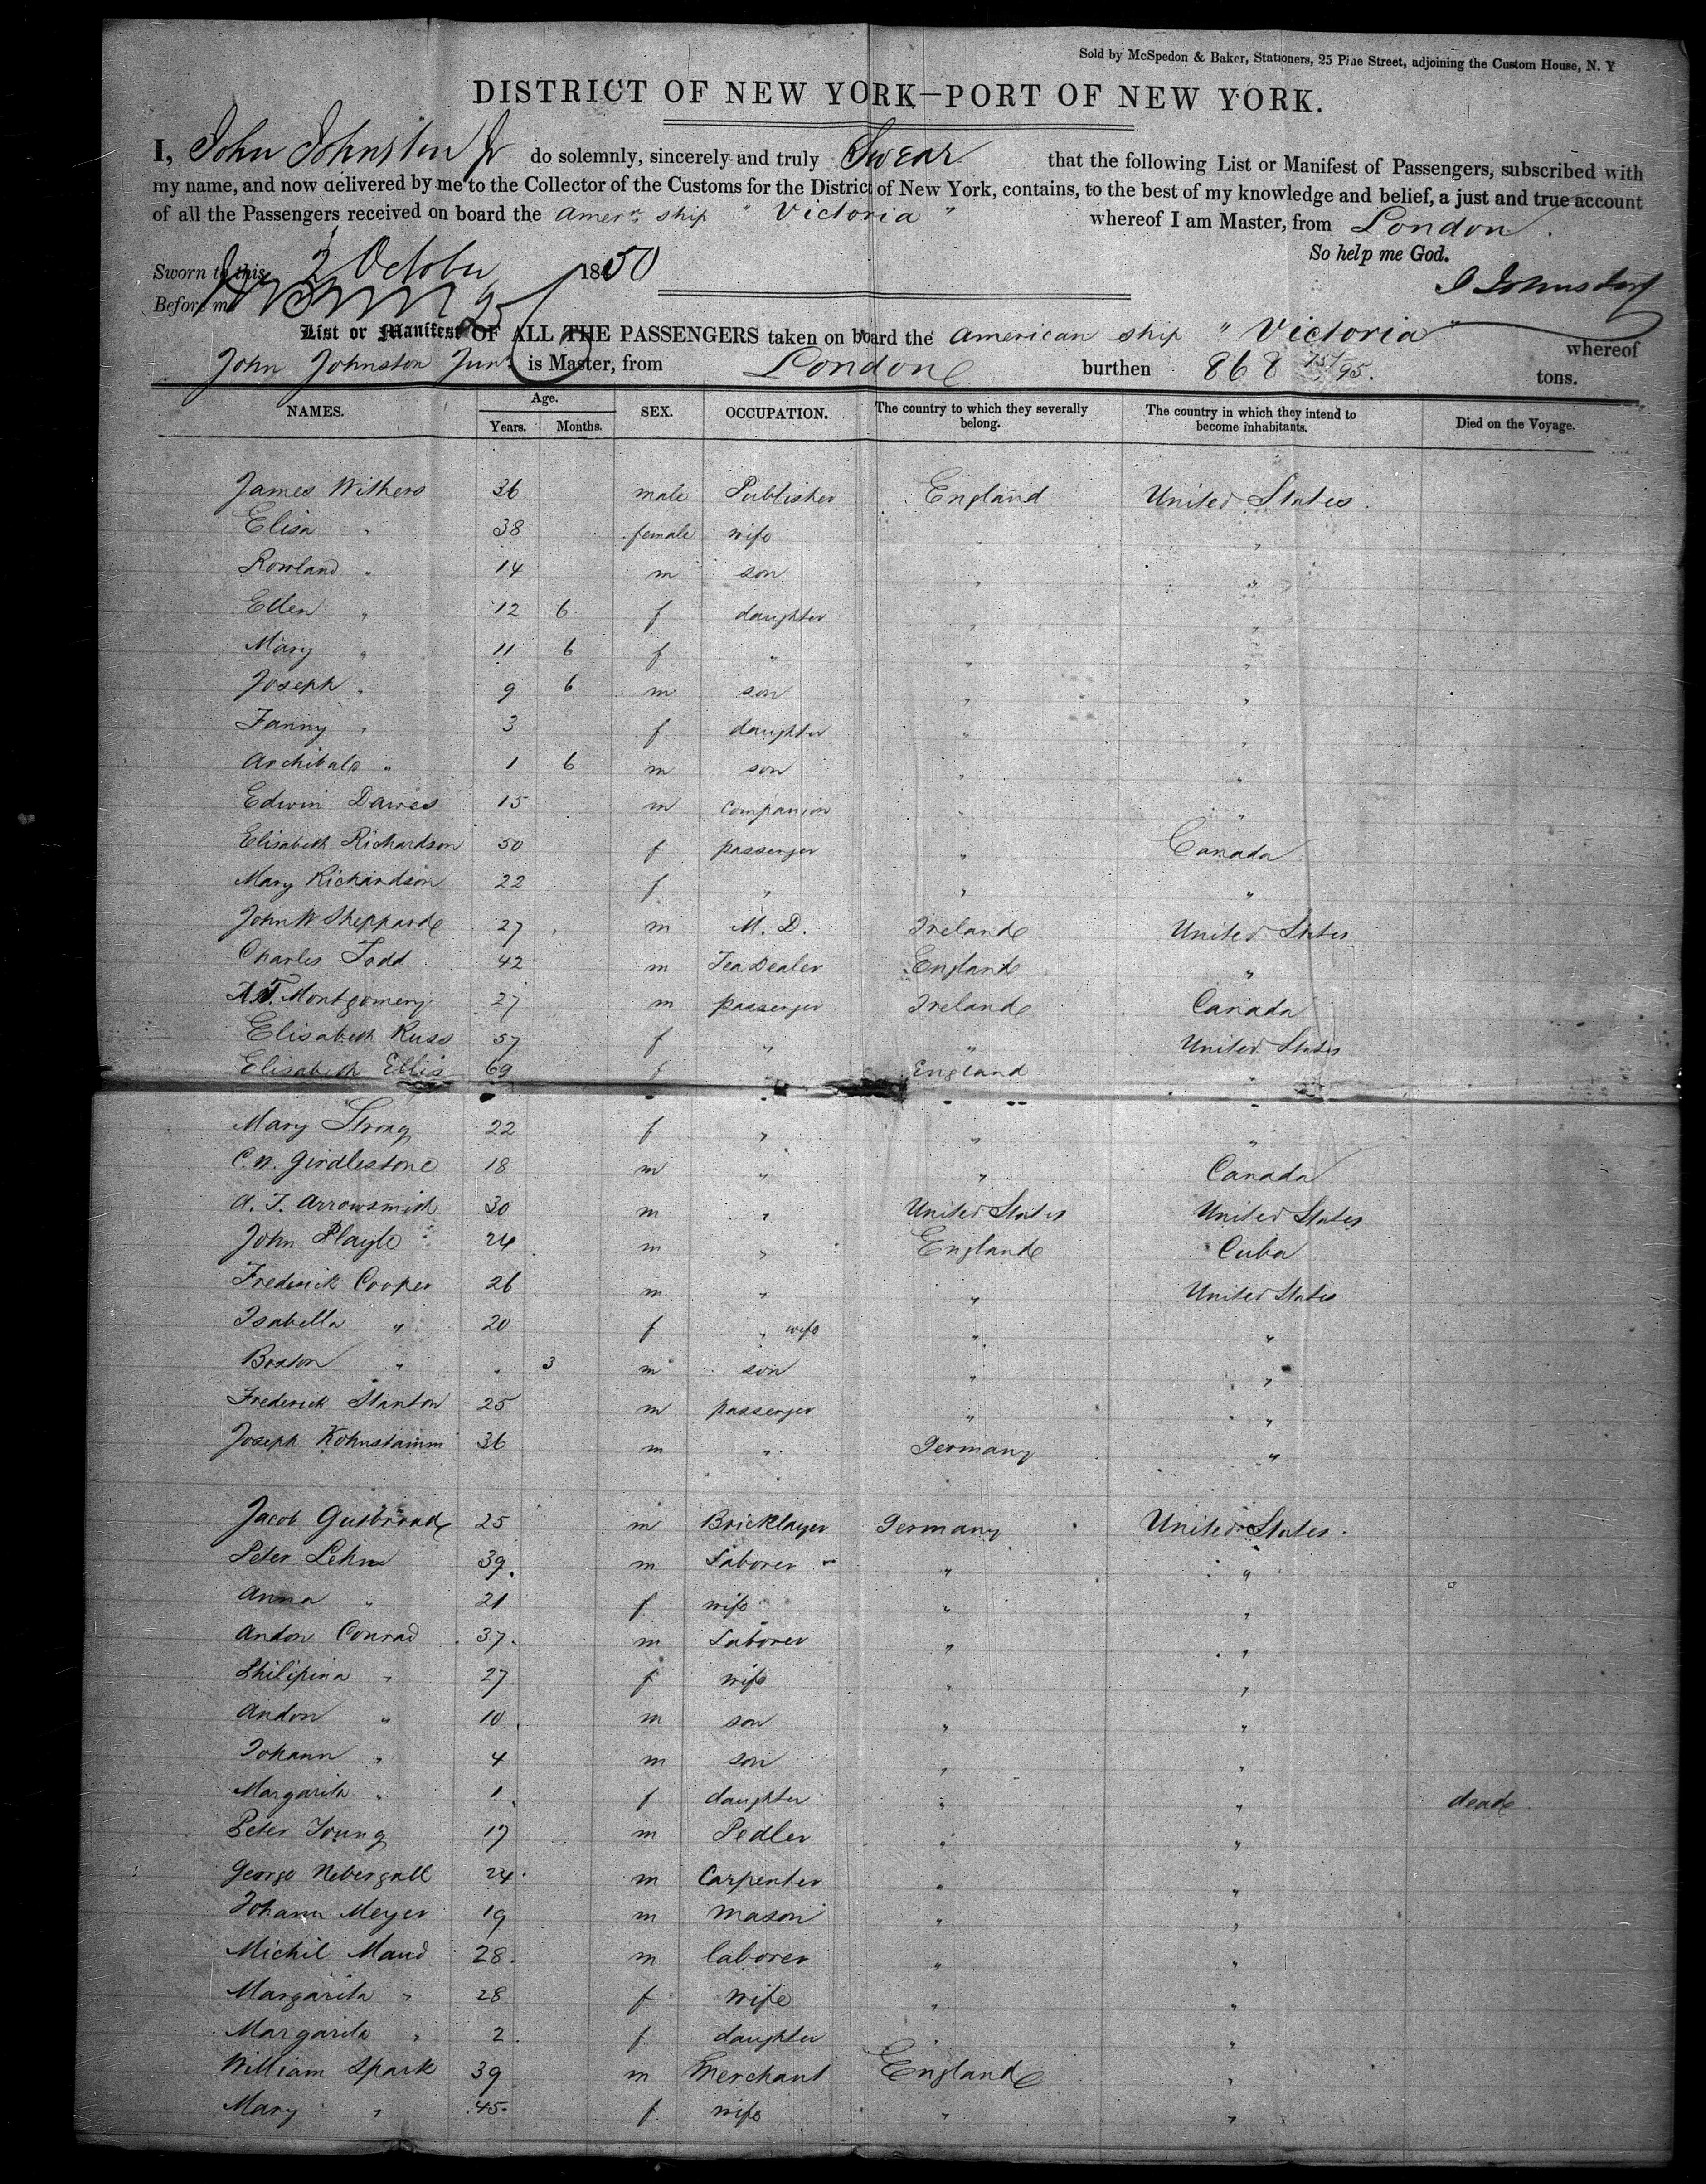 Sold by McSpedon & Baker, Stationers, 25 Pine Street, adjoining the Custom House, N. Y
DISTRICT OF NEW YORK—PORT OF NEW YORK.
I, John Johnston Jr do solemnly, sincerely and truly Swear that the following List or Manifest of Passengers, subscribed with
my name, and now delivered by me to the Collector of the Customs for the District of New York, contains, to the best of my knowledge and belief, a just and true account
of all the Passengers received on board the Amern ship "Victoria" whereof I am Master, from London.
So help me God.
Sworn to this 2 October 1850
J Johnston Jr
Before me
List or Manifest OF ALL THE PASSENGERS taken on board the American ship "Victoria" whereof
John Johnston Junr is Master, from London burthen 868 75/95. tons.
NAMES. Age. Years. Months. SEX. OCCUPATION. The country to which they severally belong. The country in which they intend to become inhabitants. Died on the Voyage.
James Withers 36 male Publisher England United States.
Elisa " 38 female wife " "
Rowland " 14 m son " "
Ellen " 12 6 f daughter " "
Mary " 11 6 f " " "
Joseph " 9 6 m son " "
Fanny " 3 f daughter " "
Archibald " 1 6 m son " "
Edwin Dawes 15 m companion " "
Elisabeth Richardson 50 f passenger " Canada
Mary Richardson 22 f " " "
John W Sheppard 27 m M. D. Ireland United States
Charles Todd 42 m Tea Dealer England "
Montgomery 27 m passenger Ireland Canada
Elisabeth Russ 57 f " " United States
Elisabeth Ellis 69 f " England "
Mary Strong 22 f " " "
C. N. Girdlestone 18 m " " Canada
A. T. Arrowsmith 30 m " United States United States
John Playle 24 m " England Cuba
Frederick Cooper 26 m " " United States
Isabella " 20 f " wife " "
Boston " 3 m son " "
Frederick Stanton 25 m passenger " "
Joseph Kohnstamm 36 m " Germany "
Jacob 25 m Bricklayer Germany United States.
Peter Lehn 39. m Laborer " "
Anna " 21 f wife " "
Andon Conrad 37. m Laborer " "
Philipina " 27 f wife " "
Andon " 10 m son " "
Johann " 4 m son " "
Margarita " 1 f daughter " " dead
Peter Young 17 m Pedler " "
George Nebergall 24 m Carpenter " "
Johann Meyer 19 m mason " "
Michil Maud 28. m laborer " "
Margarita " 28 f wife " "
Margarita " 2. f daughter " "
William Spark 39 m Merchant England "
Mary " 45 f wife " "